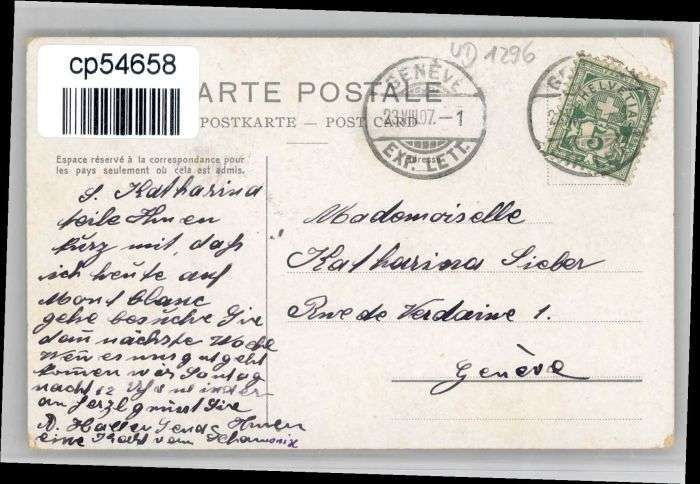 cp54658
UD 1296
CARTE POSTALE
POSTKARTE — POST CARD
GENÈVE
23.VIII.07.-1
EXP. LETT.
Adresse
HELVETIA
5
Espace réservé à la correspondance pour
les pays seulement où cela est admis.
S. Katharina
teile Ihnen
kurz mit, daß
ich heute auf
Mont blanc
gehe besuche Sie
dan nächste Woche
Wen es uns gut geht
komen wir Sontag
nacht 12 Uhr
grüst Sie
Ihnen
eine Kart vom Schamonix
Mademoiselle
Katharina Sieber
Rue de Verdaine 1.
Genève